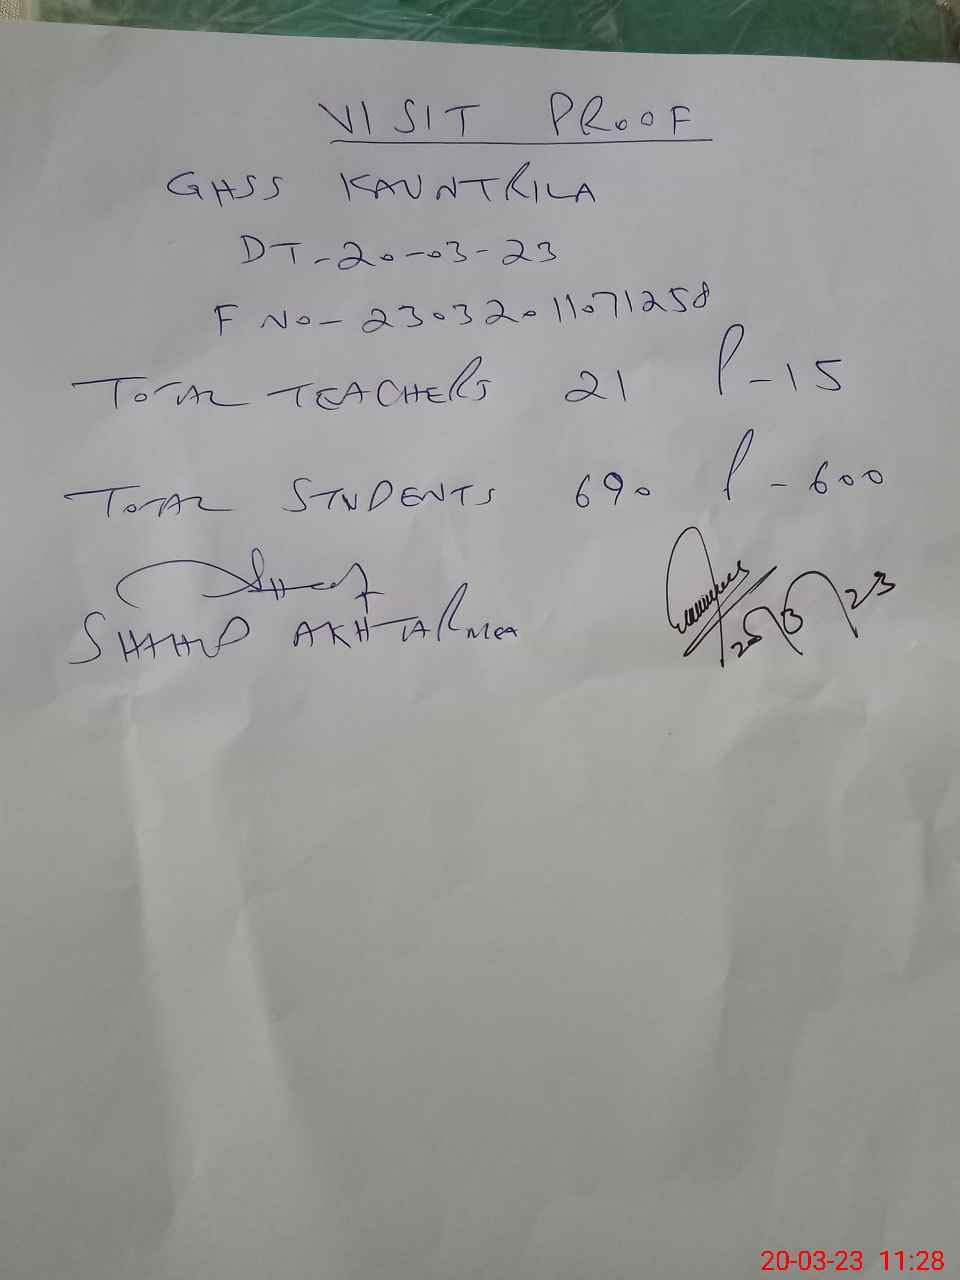 VISIT PROOF
GHSS KAUNTRILA
DT-20-03-23
F NO- 23032011071258
TOTAL TEACHERS 21 P-15
TOTAL STUDENTS 690 P-600
SHAHID AKHTAR MEA
20/3/23
20-03-23 11:28